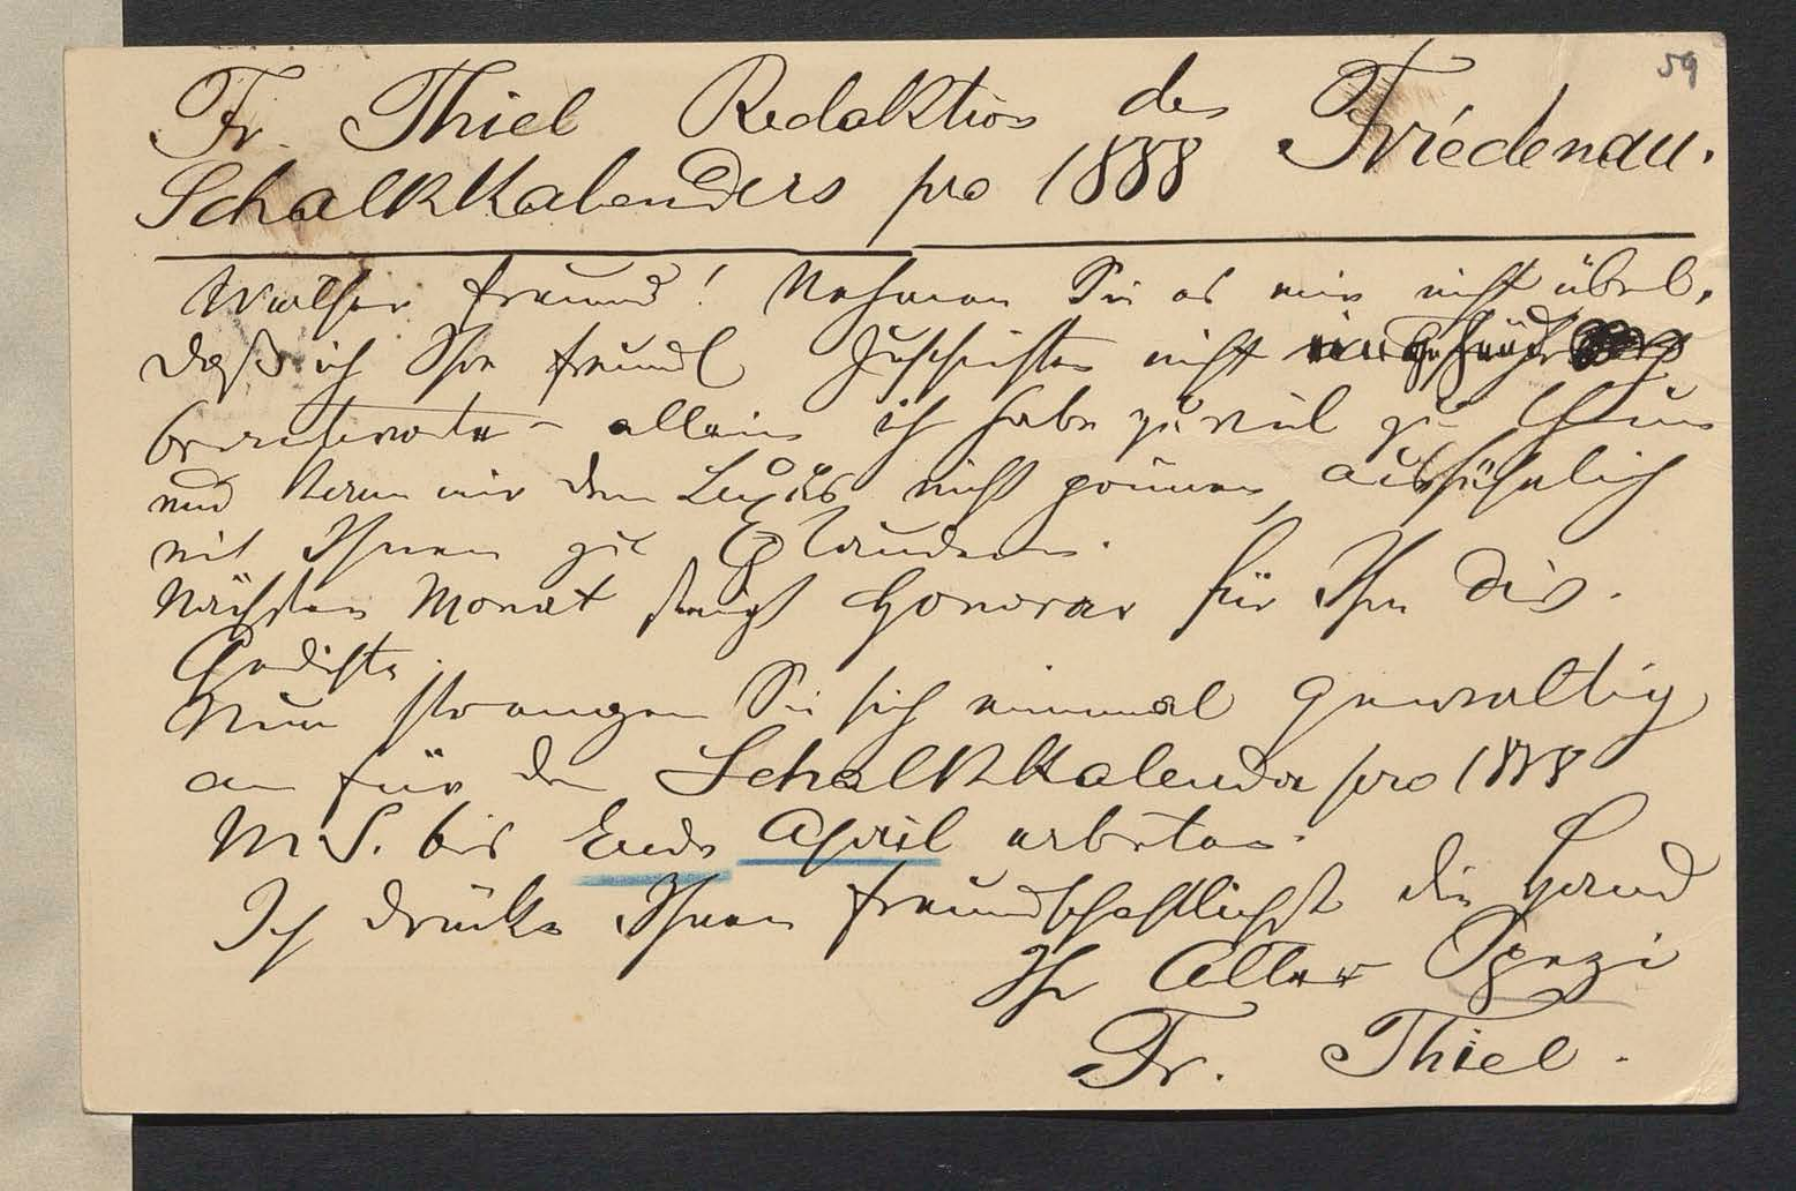 59
Fr. Thiel Redaktion des Friedenau.
Schalkkalenders pro 1888
Werther Freund! Nehmen Sie es mir nicht übel,
daß ich Ihre freundl Zuschriften nicht
beantwortete - allein ich habe zuviel zu thun
und kann mir den Luxus nicht gönnen, ausführlich
mit Ihnen zu Plaudern.
Nächsten Monat steigt Honorar für Ihre div.
Gedichte.
Nun strengen Sie sich einmal gewaltig
an für den Schalkkalender pro 1888
M.S. bis Ende April erbeten.
Ich drücke Ihnen freundschaftlichst die Hand
Ihr Alter Spezi
Fr. Thiel.